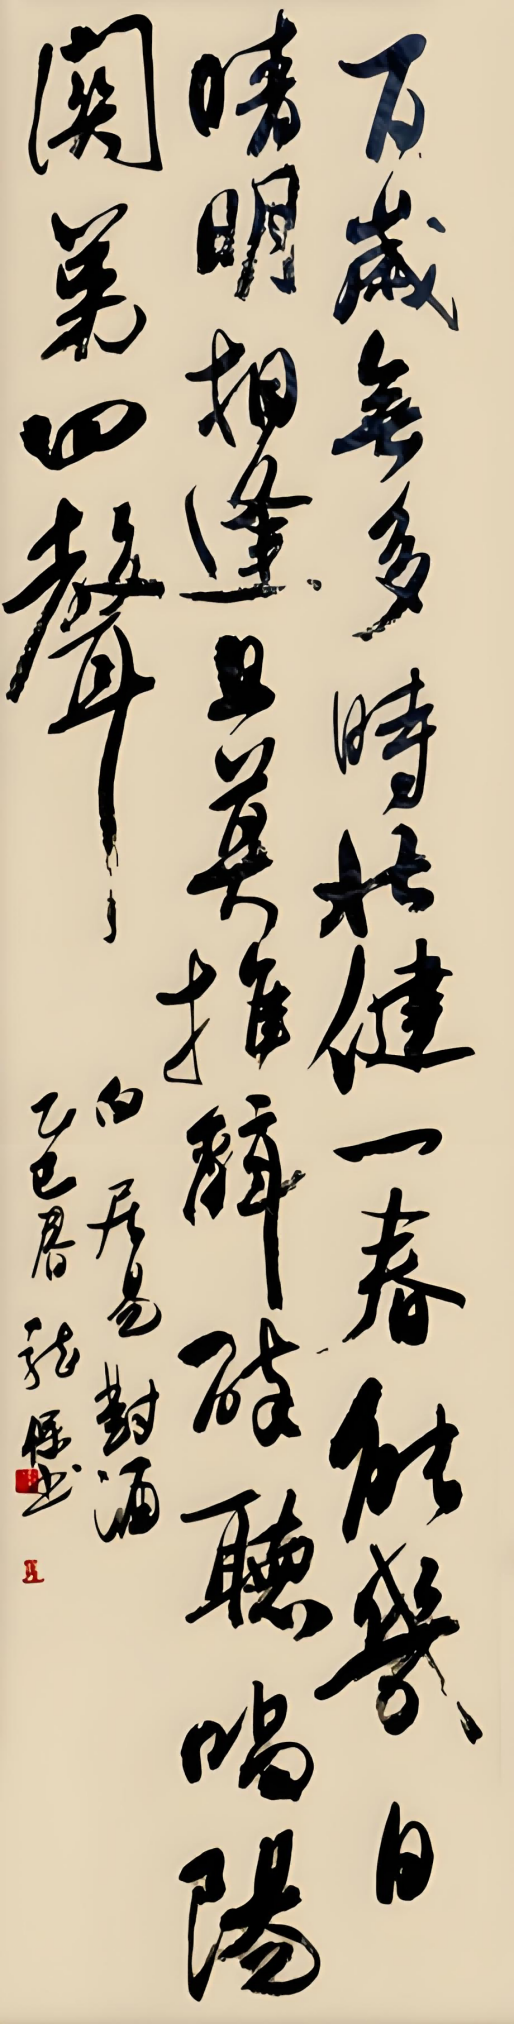 百歲無多時壯健一春能幾日
晴明相逢且莫推辭醉聽唱陽
關第四聲
白居易對酒
乙巳春龍保書